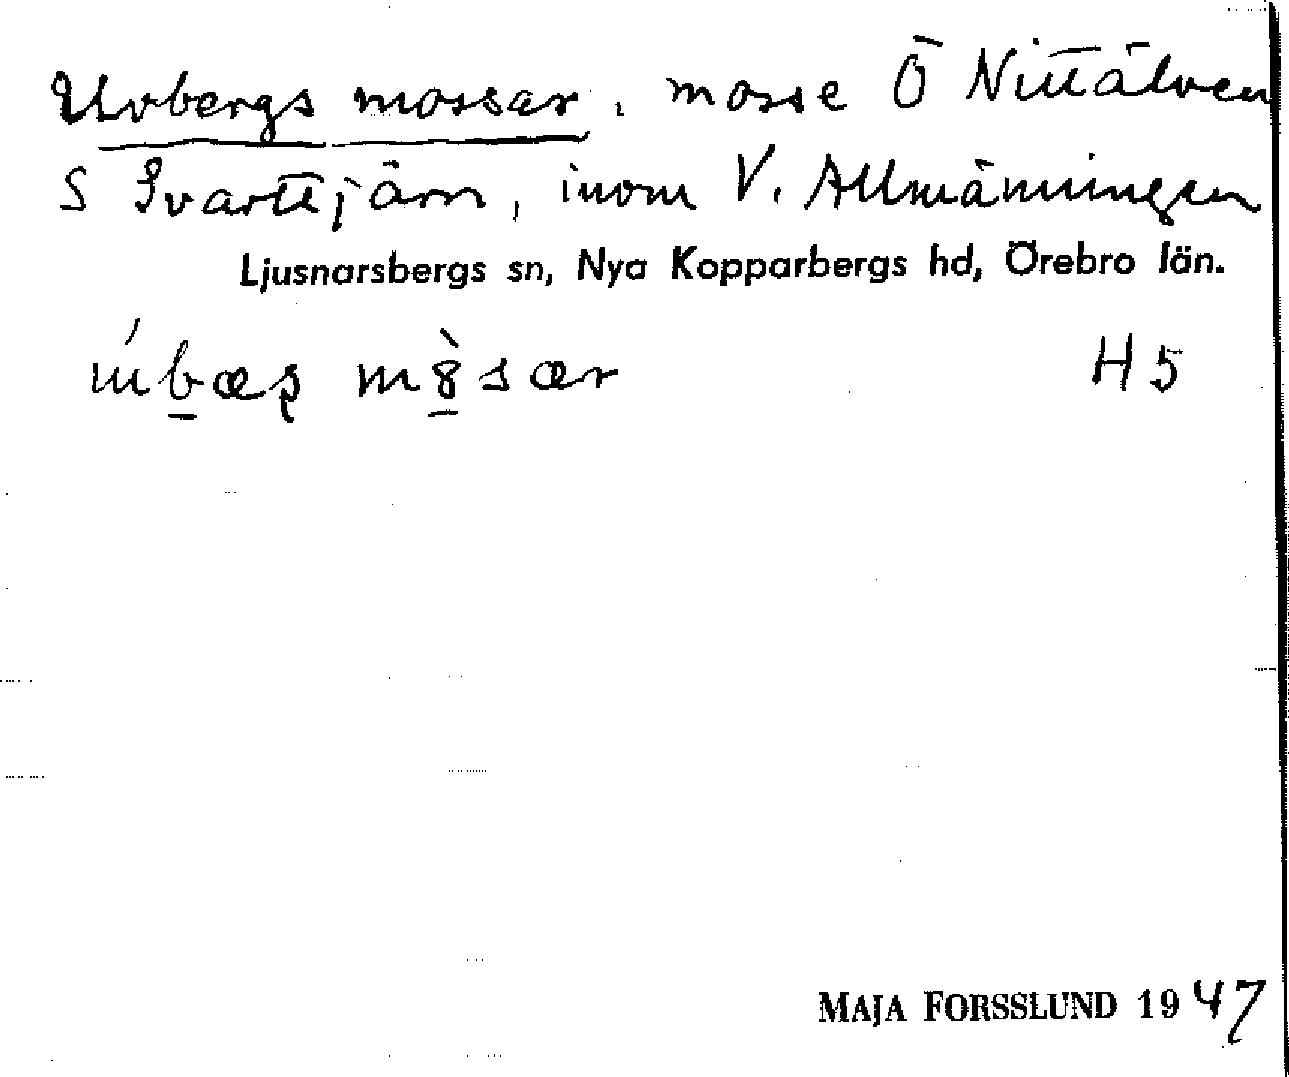 Uvbergs mossar, mosse Ö Nittälven
S Svarttjärn, inom V. Allmänningen
Ljusnarsbergs sn, Nya Kopparbergs hd, Örebro län.
H5
MAJA FORSSLUND 1947